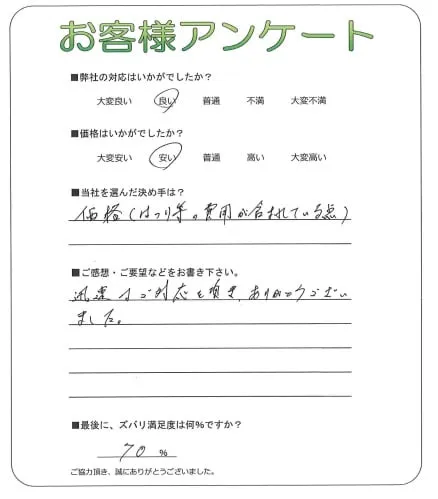 お客様アンケート
■弊社の対応はいかがでしたか?
大変良い 良い 普通 不満 大変不満
■価格はいかがでしたか?
大変安い 安い 普通 高い 大変高い
■当社を選んだ決め手は?
価格(はつり等の費用が含まれている点)
■ご感想・ご要望などをお書き下さい。
迅速なご対応を頂き、ありがとうござい
ました。
■最後に、ズバリ満足度は何%ですか?
70 %
ご協力頂き、誠にありがとうございました。